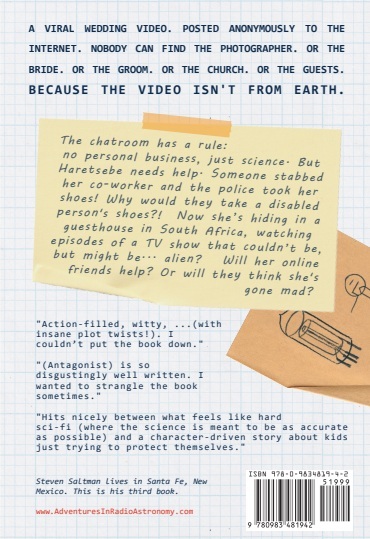 A VIRAL WEDDING VIDEO. POSTED ANONYMOUSLY TO THE
INTERNET. NOBODY CAN FIND THE PHOTOGRAPHER. OR THE
BRIDE. OR THE GROOM. OR THE CHURCH. OR THE GUESTS.
BECAUSE THE VIDEO ISN'T FROM EARTH.
The chatroom has a rule:
no personal business, just science. But
Haretsebe needs help. Someone stabbed
her co-worker and the police took her
shoes! Why would they take a disabled
person's shoes?! Now she's hiding in a
guesthouse in South Africa, watching
episodes of a TV show that couldn't be,
but might be... alien? Will her online
friends help? Or will they think she's
gone mad?
"Action-filled, witty, ...(with
insane plot twists!). I
couldn't put the book down."
"(Antagonist) is so
disgustingly well written. I
wanted to strangle the book
sometimes."
"Hits nicely between what feels like hard
sci-fi (where the science is meant to be as accurate
as possible) and a character-driven story about kids
just trying to protect themselves."
Steven Saltman lives in Santa Fe, New
Mexico. This is his third book.
www.AdventuresInRadioAstronomy.com
ISBN 978-0-9834819-4-2
51999
9 780983 481942